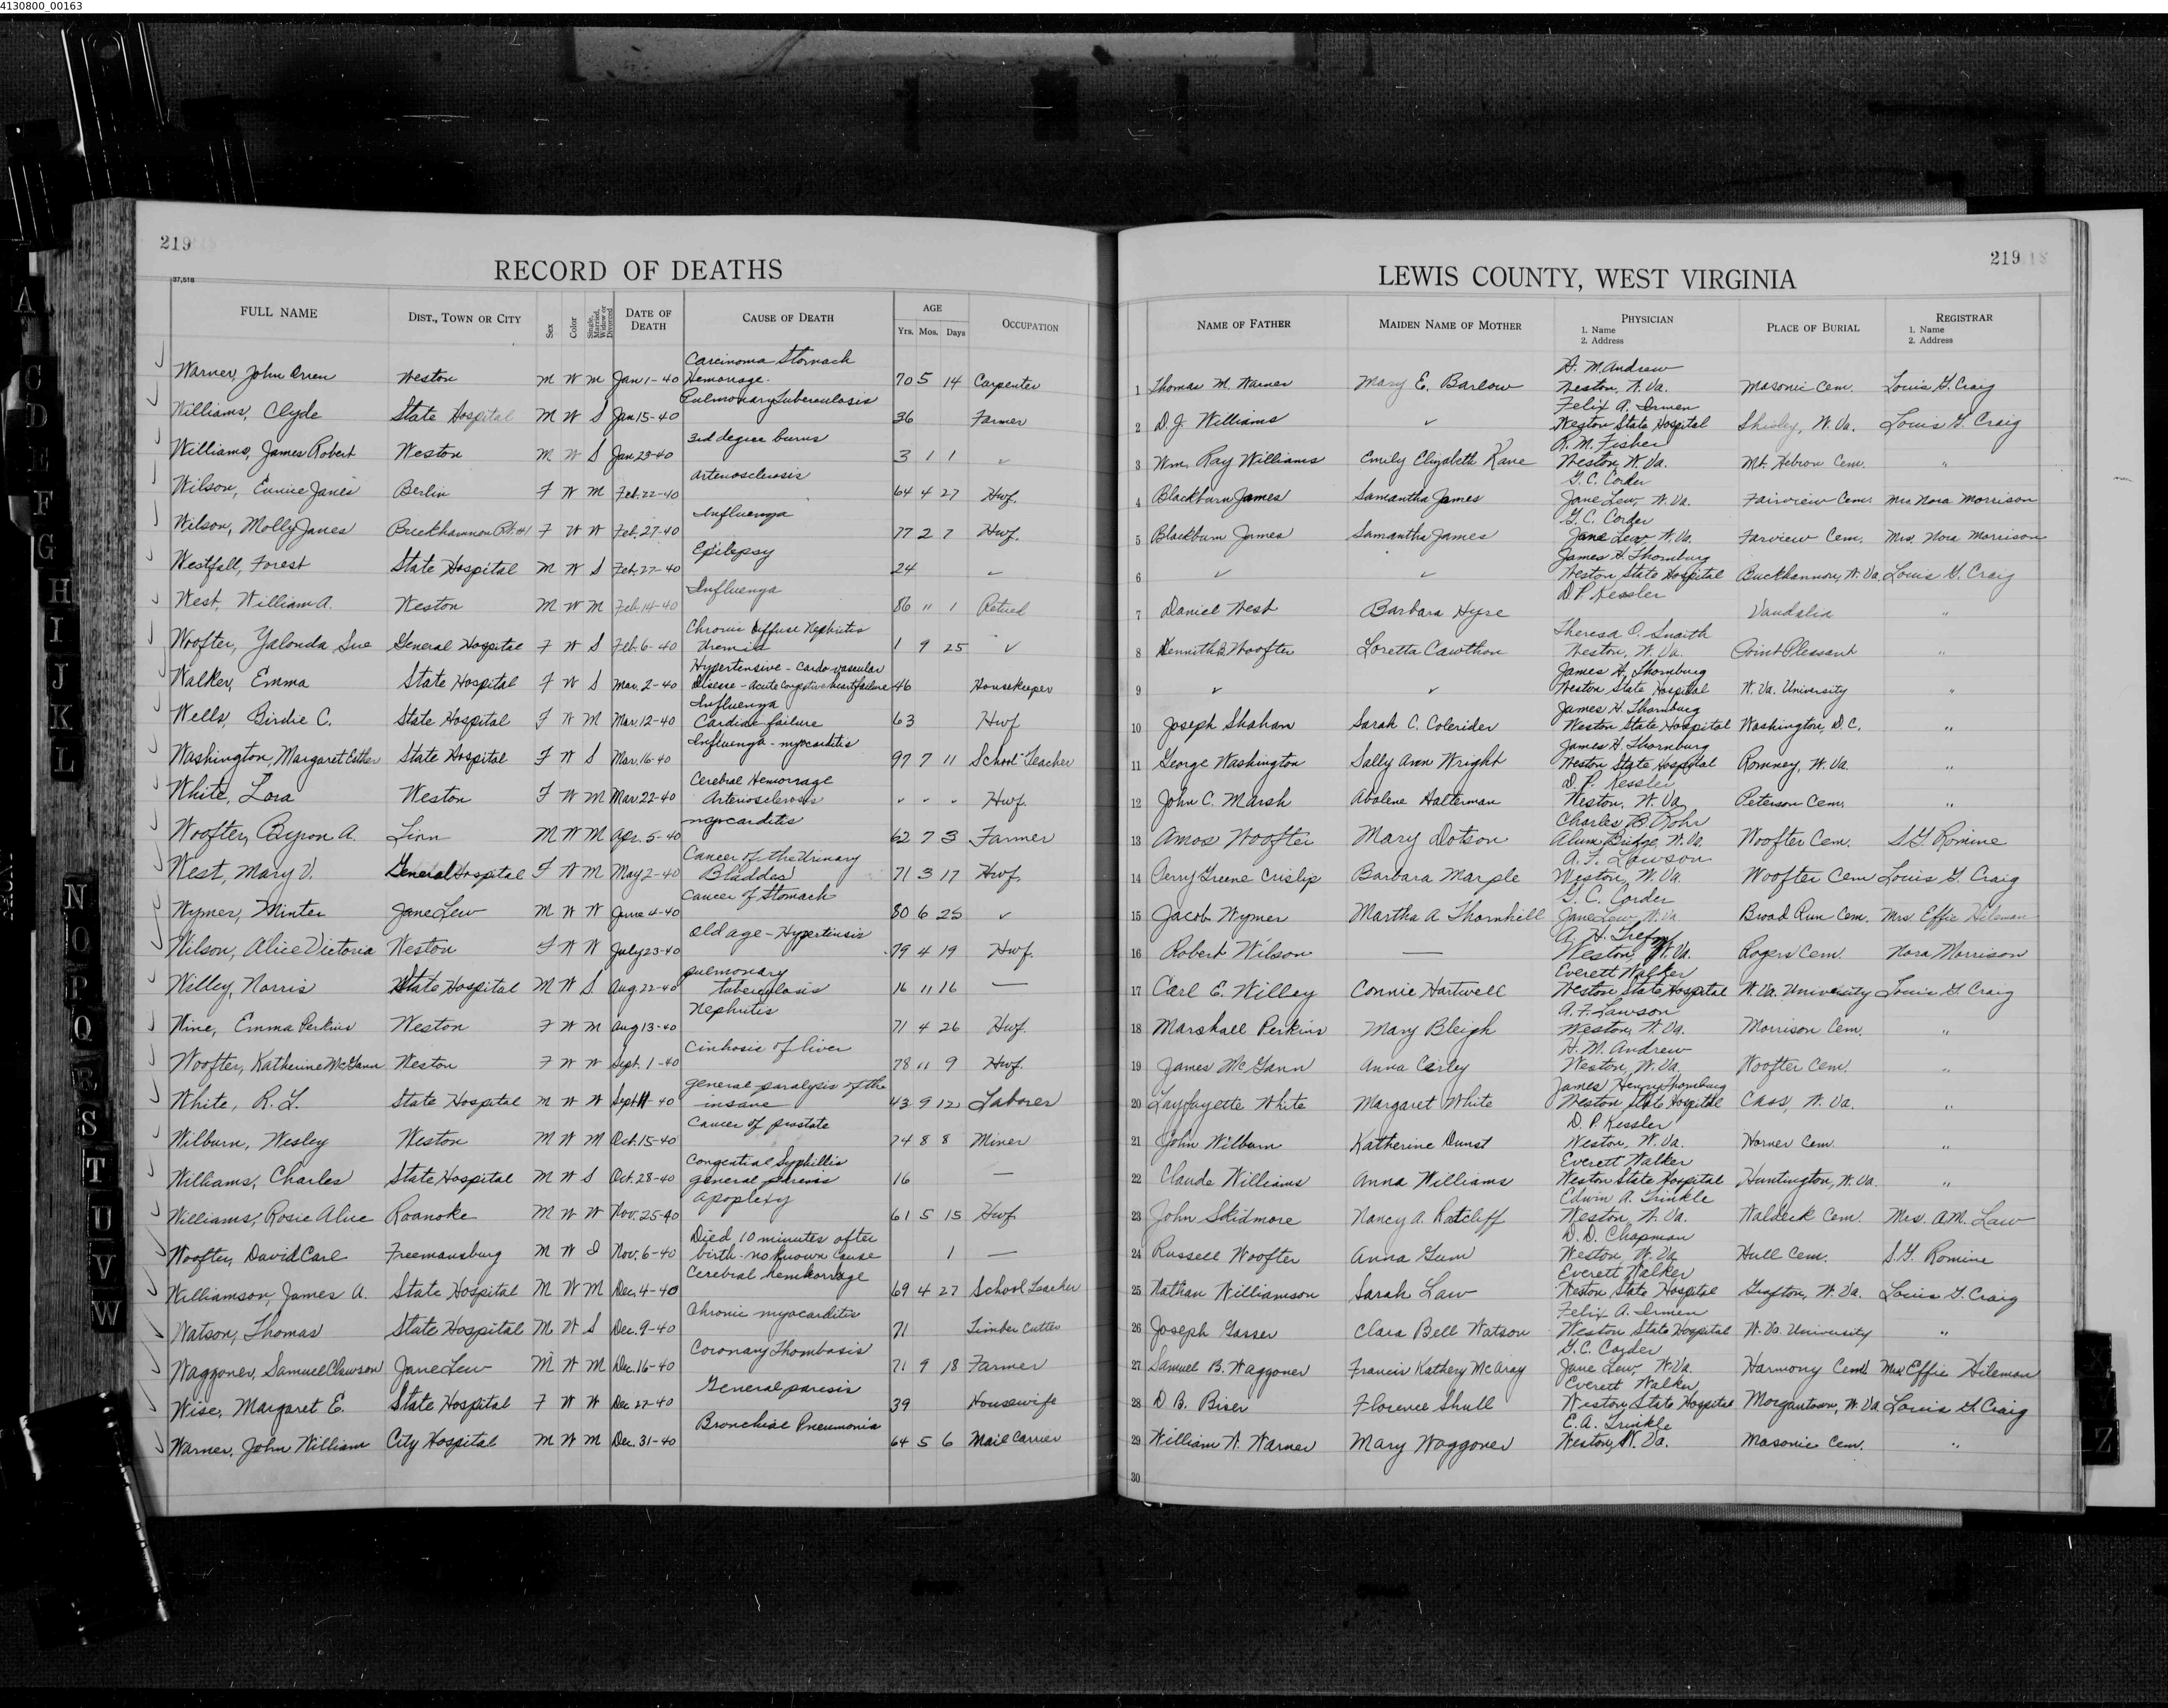 4130800_00163
219
RECORD OF DEATHS
37,518
FULL NAME DIST., TOWN OR CITY Sex Color Single, Married, Widow or Divorced DATE OF DEATH CAUSE OF DEATH AGE Yrs. Mos. Days OCCUPATION
Warner, John Orien Weston M W M Jan 1-40 Carcinoma Stomach Hemorrage. 70 5 14 Carpenter
Williams, Clyde State Hospital M W S Jan 15-40 Pulmonary Tuberculosis 36 Farmer
Williams, James Robert Weston M W S Jan 23-40 3rd degree burns 3 1 1 ✓
Wilson, Eunice Janes Berlin F W M Feb. 22-40 Arteriosclerosis 64 4 27 Hwf.
Wilson, Molly Janes Buckhannon Rt. #1 F W W Feb. 27-40 Influenza 77 2 7 Hwf.
Westfall, Forest State Hospital M W S Feb. 27-40 Epilepsy 24 ✓
West, William A. Weston M W M Feb. 14-40 Influenza 86 11 1 Retired
Woofter, Yalonda Sue General Hospital F W S Feb. 6-40 Chronic Diffuse Nephritis Uremia 1 9 25 ✓
Walker, Emma State Hospital F W S Mar. 2-40 Hypertensive - Cardo-vascular Disease - Acute Congestive heart failure 46 Housekeeper
Wells, Birdie C. State Hospital F W M Mar. 12-40 Influenza Cardiac failure 63 Hwf
Washington, Margaret Esther State Hospital F W S Mar. 16-40 Influenza - myocarditis 97 7 11 School Teacher
White, Lora Weston F W M Mar 22-40 Cerebral Hemorrage Arteriosclerosis - - - Hwf.
Woofter, Byron A. Linn M W M Apr. 5-40 myocarditis 62 7 3 Farmer
West, Mary V. General Hospital F W M May 2-40 Cancer of the Urinary Bladder 71 3 17 Hwf.
Wymer, Minter Jane Lew M W W June 4-40 Cancer of Stomach 80 6 25 ✓
Wilson, Alice Victoria Weston F W W July 23-40 Old age - Hypertensis 79 4 19 Hwf.
Willey, Norris State Hospital M W S Aug. 22-40 pulmonary tuberculosis 16 11 16 —
Wine, Emma Perkins Weston F W M Aug 13-40 Nephritis 71 4 26 Hwf.
Woofter, Katherine McGann Weston F W W Sept. 1-40 Cirrhosis of liver 78 11 9 Hwf.
White, R. L. State Hospital M W W Sept 11-40 general paralysis of the insane 43 9 12 Laborer
Wilburn, Wesley Weston M W M Oct. 15-40 Cancer of prostate 74 8 8 Miner
Williams, Charles State Hospital M W S Oct. 28-40 Congential Syphillis general paresis 16 —
Williams, Rosie Alice Roanoke M W W Nov. 25-40 Apoplexy 61 5 15 Hwf
Woofter, David Carl Freemansburg M W S Nov. 6-40 Died 10 minutes after birth - no known cause 1 —
Williamson, James A. State Hospital M W M Dec. 4-40 Cerebral hemkorrage 69 4 27 School Teacher
Watson, Thomas State Hospital M W S Dec. 9-40 Chronic myocarditis 71 Timber Cutter
Waggoner, Samuel Clawson Jane Lew M W M Dec. 16-40 Coronary Thombosis 71 9 18 Farmer
Wise, Margaret E. State Hospital F W W Dec 27-40 General paresis 39 Housewife
Warner, John William City Hospital M W M Dec. 31-40 Bronchial Pneumonia 64 5 6 Mail Carrier
219
LEWIS COUNTY, WEST VIRGINIA
NAME OF FATHER MAIDEN NAME OF MOTHER PHYSICIAN 1. Name 2. Address PLACE OF BURIAL REGISTRAR 1. Name 2. Address
1 Thomas M. Warner Mary E. Barlow H. M. Andrew Weston, W. Va. Masonic Cem. Louis G. Craig
2 D. J. Williams ✓ Felix A. Irmen Weston State Hospital Shirley, W. Va. Louis G. Craig
3 Wm. Ray Williams Emily Elizabeth Kane R. M. Fisher Weston, W. Va. Mt. Hebron Cem. "
4 Blackburn James Samantha James G. C. Corder Jane Lew, W. Va. Fairview Cem. Mrs Nora Morrison
5 Blackburn James Samantha James G. C. Corder Jane Lew W. Va. Farview Cem. Mrs. Nora Morrison
6 ✓ ✓ James H. Thornburg Weston State Hospital Buckhannon, W. Va. Louis G. Craig
7 Daniel West Barbara Hyre D. P. Kessler Vandalia "
8 Kennith B. Woofter Loretta Cawthon Theresa O. Snaith Weston, W. Va. Point Pleasant "
9 ✓ ✓ James H. Thornburg Weston State Hospital W. Va. University "
10 Joseph Shahan Sarah C. Colerider James H. Thornburg Weston State Hospital Washington, D.C. "
11 George Washington Sally Ann Wright James H. Thornburg Weston State Hospital Romney, W. Va. "
12 John C. Marsh Abalene Halterman D. P. Kessler Weston, W. Va. Peterson Cem. "
13 Amos Woofter Mary Dotson Charles B. Rohr Alum Bridge, W. Va. Woofter Cem. S. G. Romine
14 Perry Greene Crislip Barbara Marple A. F. Lawson Weston, W. Va. Woofter Cem Louis G. Craig
15 Jacob Wymer Martha A Thornhill G. C. Corder Jane Lew, W. Va. Broad Run Cem. Mrs. Effie Hileman
16 Robert Wilson — A. H. Weston, W. Va. Rogers Cem. Nora Morrison
17 Carl E. Willey Connie Hartwell Everett Walker Weston State Hospital W. Va. University Louis G. Craig
18 Marshall Perkins Mary Bleigh A. F. Lawson Weston, W. Va. Morrison Cem. "
19 James McGann Anna Carley H. M. Andrew Weston, W. Va. Woofter Cem. "
20 Layfayette White Margaret White James Henry Thornburg Weston State Hospital Cass, W. Va. "
21 John Wilburn Katherine Dunst D. P. Kessler Weston, W. Va. Horner Cem. "
22 Claude Williams Anna Williams Everett Walker Weston State Hospital Huntington, W. Va. "
23 John Skidmore Nancy A. Ratcliff Edwin A. Trinkle Weston, W. Va. Waldeck Cem. Mrs. A.M. Law
24 Russell Woofter Anna Gum D. D. Chapman Weston, W. Va. Hull Cem. S. G. Romine
25 Nathan Williamson Sarah Law Everett Walker Weston State Hospital Grafton, W. Va. Louis G. Craig
26 Joseph Gasser Clara Bell Watson Felix A. Irmen Weston State Hospital W. Va. University "
27 Samuel B. Waggoner Francis Kathery McAray G. C. Corder Jane Lew, W. Va. Harmony Cem. Mrs Effie Hileman
28 D. B. Biser Florence Shull Everett Walker Weston State Hospital Morgantown, W. Va. Louis G. Craig
29 William W. Warner Mary Waggoner E. A. Trinkle Weston, W. Va. Masonic Cem. "
30
A
C
D
E
F
G
H
I
J
K
L
N
O
P
Q
R
S
T
U
V
W
X
Z